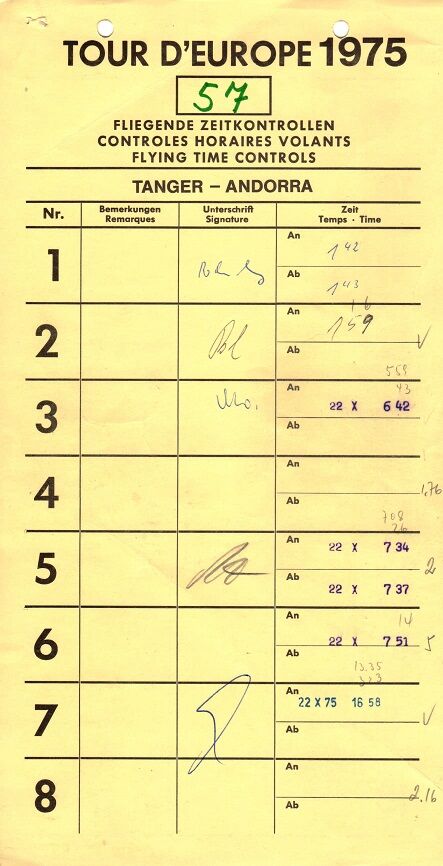 TOUR D'EUROPE 1975
57
FLIEGENDE ZEITKONTROLLEN
CONTROLES HORAIRES VOLANTS
FLYING TIME CONTROLS
TANGER – ANDORRA
Nr.
Bemerkungen
Remarques
Unterschrift
Signature
Zeit
Temps · Time
1
An
1 42
Ab
1 43
2
An
1 59
Ab
559
3
An
43
22 X 6 42
Ab
4
An
1,76
Ab
708
26
5
An
22 X 7 34
2
Ab
22 X 7 37
6
An
14
22 X 7 51
5
Ab
13.35
7
An
22 X 75 16 58
Ab
8
An
2.16
Ab